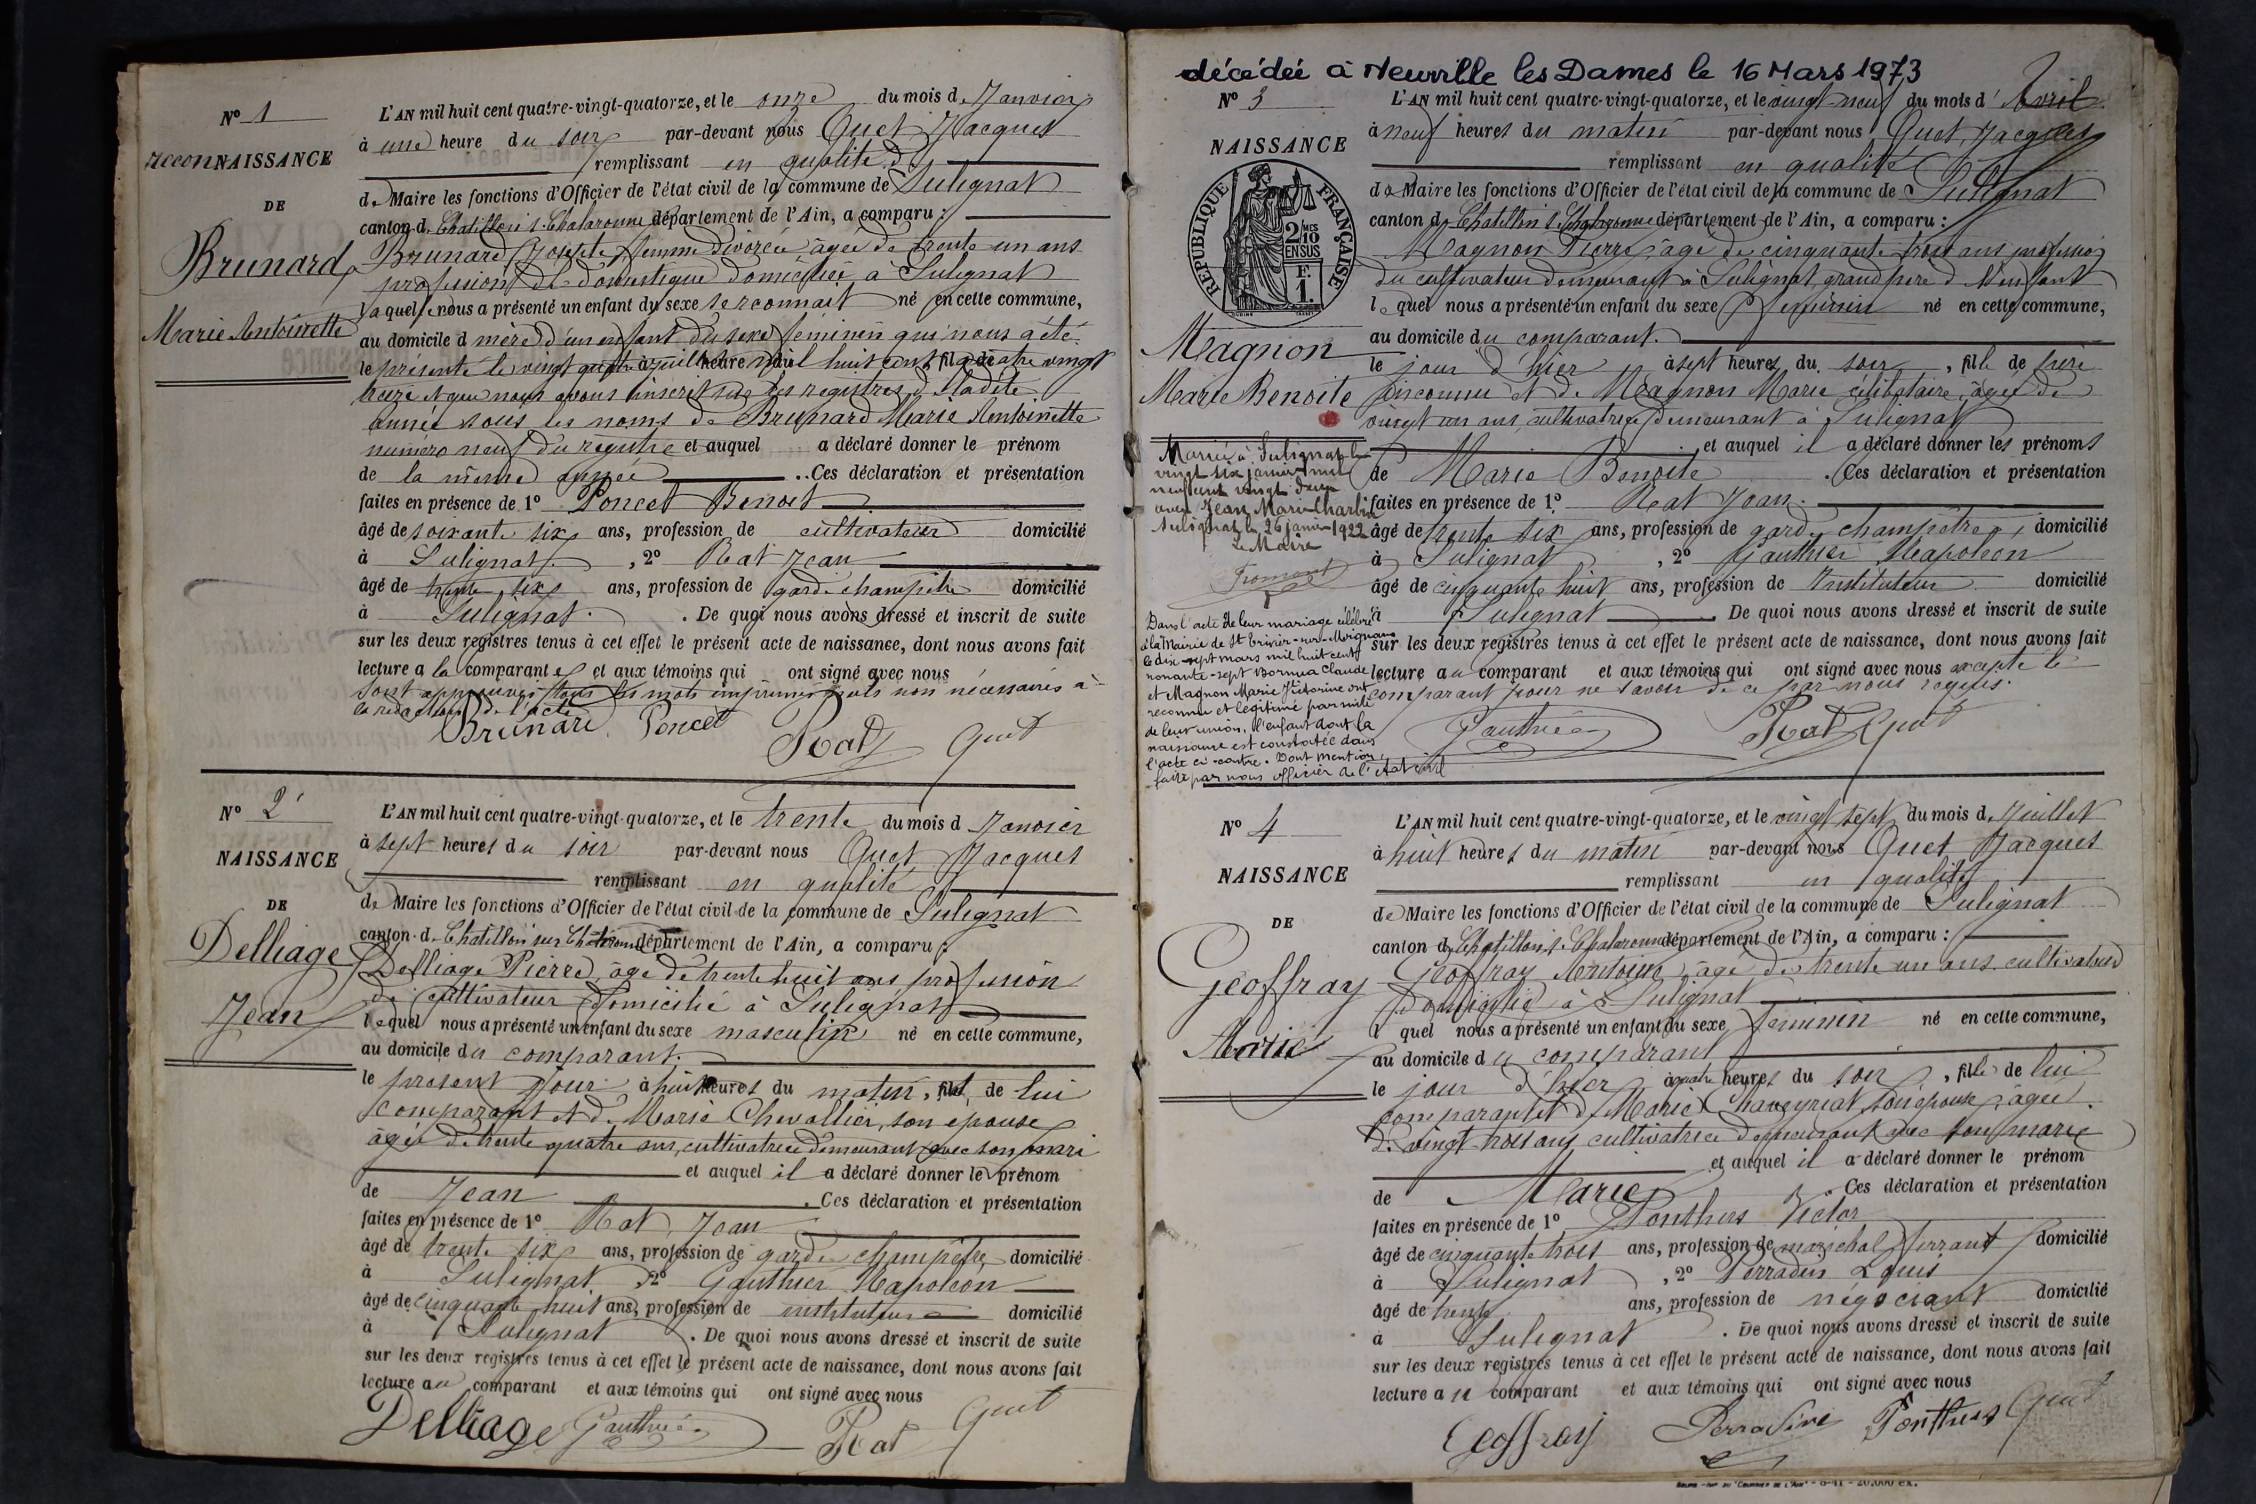 Nº 1
reconNAISSANCE
DE
Brunard
Marie Antoinette
L'AN mil huit cent quatre-vingt-quatorze, et le onze du mois de Janvier
à une heure du soir par-devant nous Quet Jacques
remplissant en qualité
de Maire les fonctions d'Officier de l'état civil de la commune de Sulignat
canton de Chatillon s. Chalaronne département de l'Ain, a comparu :
Brunard Josepte femme divorcée âgée de trente un ans
profession de domestique domiciliée à Sulignat
laquelle nous a présenté un enfant du sexe se reconnait né en cette commune,
au domicile d mère d'un enfant du sexe féminin qui nous a été
le présenté le vingt quatre juillet heure mil huit cent fil de quatre vingt
treize et que nous avons inscrit sur les registres de ladite
année sous les noms de Brunard Marie Antoinette
numéro neuf du registre et auquel a déclaré donner le prénom
de la même année . Ces déclaration et présentation
faites en présence de 1º Poncet Benoit
âgé de soixante six ans, profession de cultivateur domicilié
à Sulignat , 2º Rat Jean
âgé de trente six ans, profession de garde champêtre domicilié
à Sulignat . De quoi nous avons dressé et inscrit de suite
sur les deux registres tenus à cet effet le présent acte de naissance, dont nous avons fait
lecture a la comparante et aux témoins qui ont signé avec nous
sont approuvés tous les mots imprimés nuls non nécessaires à
la rédaction de l'acte
Brunard Poncet Rat Quet
Nº 2
NAISSANCE
DE
Delliage
Jean
L'AN mil huit cent quatre-vingt-quatorze, et le trente du mois d Janvier
à sept heures du soir par-devant nous Quet Jacques
remplissant en qualité
de Maire les fonctions d'Officier de l'état civil de la commune de Sulignat
canton de Chatillon sur Chalaronne département de l'Ain, a comparu :
Delliage Pierre, âgé de trente huit ans profession
de cultivateur domicilié à Sulignat
lequel nous a présenté un enfant du sexe masculin né en cette commune,
au domicile du comparant.
le présent jour à huit heures du matin, fils de lui
comparant et de Marie Chevallier, son épouse
âgée de trente quatre ans, cultivatrice demeurant avec son mari
et auquel il a déclaré donner le prénom
de Jean . Ces déclaration et présentation
faites en présence de 1º Rat Jean
âgé de trente six ans, profession de garde champêtre domicilié
à Sulignat 2º Gauthier Napoléon
âgé de cinquante huit ans, profession de instituteur domicilié
à Sulignat . De quoi nous avons dressé et inscrit de suite
sur les deux registres tenus à cet effet le présent acte de naissance, dont nous avons fait
lecture au comparant et aux témoins qui ont signé avec nous
Delliage Gauthier Rat Quet
décédée à Neuville les Dames le 16 Mars 1973
Nº 3
NAISSANCE
REPUBLIQUE FRANÇAISE
2/10 MES EN SUS
F. 1.
Magnon
Marie Benoite
Mariée à Sulignat le
vingt six janvier mil
neuf cent vingt deux
avec Jean Marie Charlin
Sulignat le 26 janvier 1922
Le Maire
Fromont
Dans l'acte de leur mariage célébré
à la Mairie de St Trivier-sur-Moignans
le dix-sept mars mil huit cent
nonante-sept Claude
et Magnon Marie Victorine ont
reconnu et légitimé par suite
de leur union, l'enfant dont la
naissance est constatée dans
l'acte ci-contre. Dont mention
faite par nous officier de l'état civil
L'AN mil huit cent quatre-vingt-quatorze, et le vingt-neuf du mois d'Avril
à neuf heures du matin par-devant nous Quet Jacques
remplissant en qualité
de Maire les fonctions d'Officier de l'état civil de la commune de Sulignat
canton de Chatillon s. Chalaronne département de l'Ain, a comparu :
Magnon Pierre, âgé de cinquante trois ans profession
de cultivateur demeurant à Sulignat, grand père de l'enfant
lequel nous a présenté un enfant du sexe féminin né en cette commune,
au domicile du comparant.
le jour d'hier à sept heures du soir, fille de père
inconnu et de Magnon Marie célibataire, âgée de
vingt un ans, cultivatrice demeurant à Sulignat
et auquel il a déclaré donner les prénoms
de Marie Benoite . Ces déclaration et présentation
faites en présence de 1º Rat Jean
âgé de trente six ans, profession de garde champêtre, domicilié
à Sulignat , 2º Gauthier Napoléon
âgé de cinquante huit ans, profession de Instituteur domicilié
à Sulignat . De quoi nous avons dressé et inscrit de suite
sur les deux registres tenus à cet effet le présent acte de naissance, dont nous avons fait
lecture au comparant et aux témoins qui ont signé avec nous excepté le
comparant pour ne savoir de ce par nous requis.
Gauthier Rat Quet
Nº 4
NAISSANCE
DE
Geoffray
Marie
L'AN mil huit cent quatre-vingt-quatorze, et le vingt sept du mois de Juillet
à huit heures du matin par-devant nous Quet Jacques
remplissant en qualité
de Maire les fonctions d'Officier de l'état civil de la commune de Sulignat
canton de Chatillon s. Chalaronne département de l'Ain, a comparu :
Geoffray Antoine, âgé de trente un ans cultivateur
domicilié à Sulignat
l quel nous a présenté un enfant du sexe féminin né en cette commune,
au domicile du comparant
le jour d'hier à quatre heures du soir, fille de lui
comparant et de Marie Chaveyriat son épouse, âgée
de vingt trois ans cultivatrice demeurant avec son mari
et auquel il a déclaré donner le prénom
de Marie . Ces déclaration et présentation
faites en présence de 1º Ponthus Victor
âgé de cinquante trois ans, profession de maréchal ferrant domicilié
à Sulignat , 2º Perradin Louis
âgé de trente ans, profession de négociant domicilié
à Sulignat . De quoi nous avons dressé et inscrit de suite
sur les deux registres tenus à cet effet le présent acte de naissance, dont nous avons fait
lecture au comparant et aux témoins qui ont signé avec nous
Geoffray Ponthus Quet